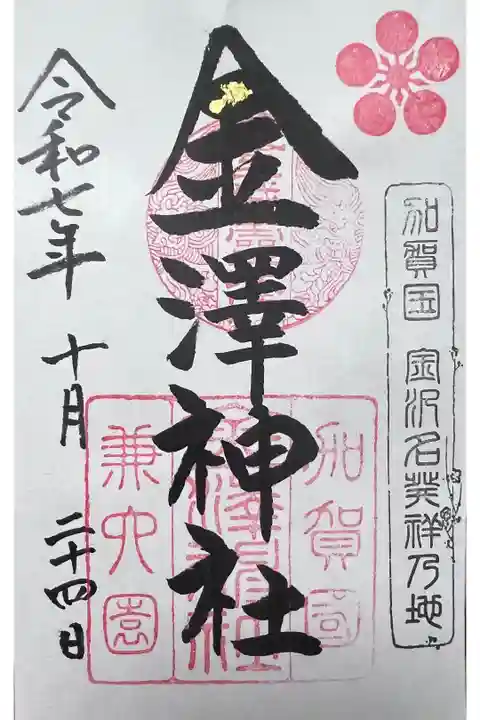 加賀国 金沢名発祥乃地
金澤神社
加賀國
金澤神社
兼六園
令和七年 十月 二十四日